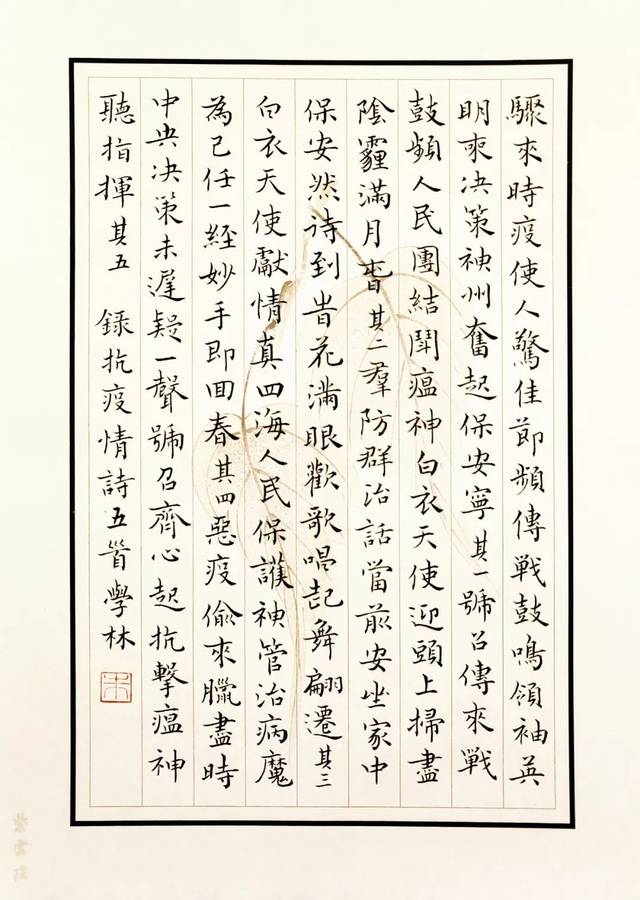 驟來時疫使人驚佳節頻傳戰鼓鳴領袖英
明東決策神州奮起保安寧其一號召傳來戰
鼓頻人民團結鬪瘟神白衣天使迎頭上掃盡
陰霾滿月唇其二羣防群治話當前安坐家中
保安然待到春花滿眼歡歌唱起舞翩遷其三
白衣天使獻情真四海人民保護神管治病魔
為己任一經妙手即回春其四惡疫偷來臘盡時
中央決策未遲疑一聲號召齊心起抗擊瘟神
聽指揮其五 錄抗疫情詩五首學林
紫雲莊